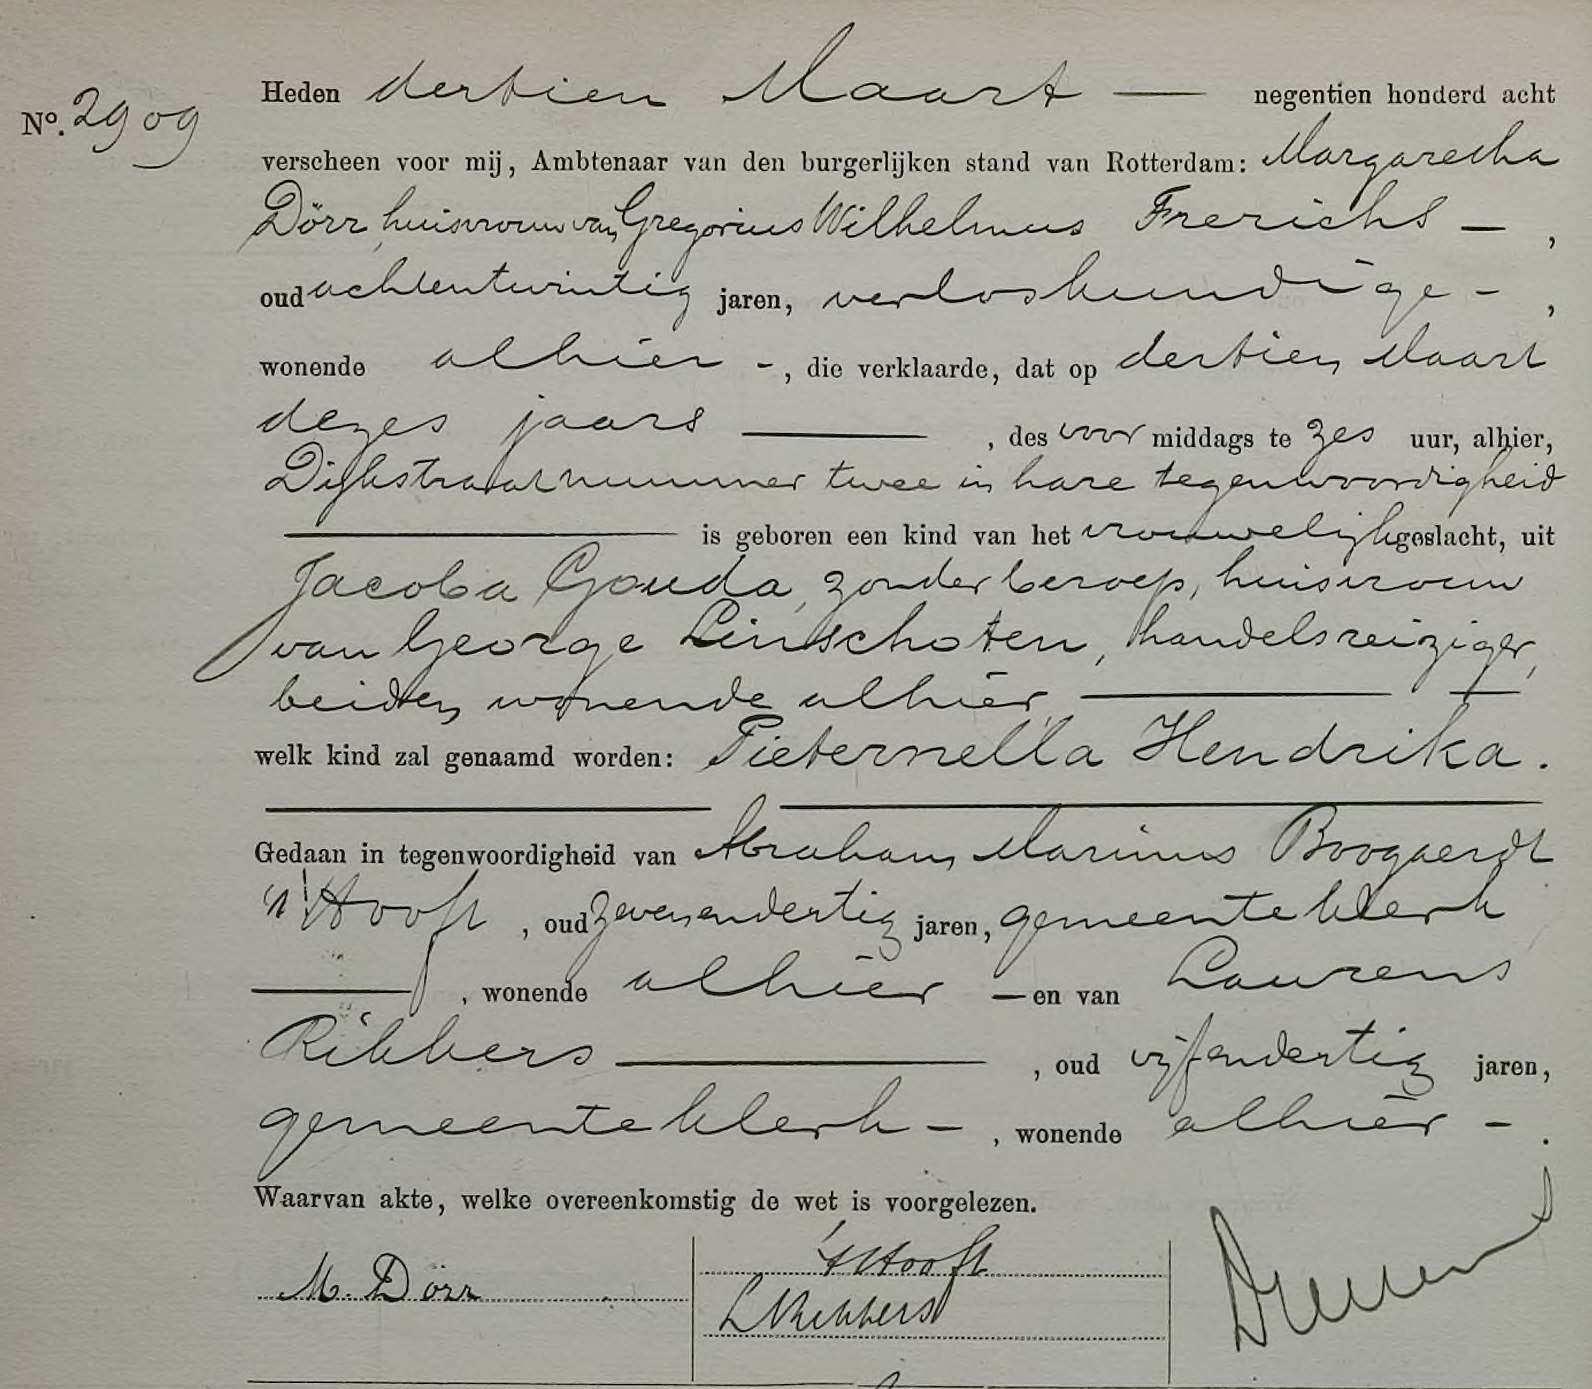 No. 2909
Heden dertien Maart — negentien honderd acht
verscheen voor mij, Ambtenaar van den burgerlijken stand van Rotterdam: Margaretha
Dörr, huisvrouw van Gregorius Wilhelmus Frerichs —,
oud achtentwintig jaren, verloskundige -,
wonende alhier -, die verklaarde, dat op dertien Maart
dezes jaars —, des voor middags te zes uur, alhier,
Dijkstraat nummer twee in hare tegenwoordigheid
— is geboren een kind van het vrouwelijk geslacht, uit
Jacoba Gouda, zonder beroep, huisvrouw
van George Linschoten, handelsreiziger,
beiden wonende alhier —
welk kind zal genaamd worden: Pieternella Hendrika.
Gedaan in tegenwoordigheid van Abraham Marinus Boogaerdt
't Hooft, oud zevenendertig jaren, gemeenteklerk
—, wonende alhier — en van Laurens
Ribbers —, oud vijfendertig jaren,
gemeenteklerk —, wonende alhier -.
Waarvan akte, welke overeenkomstig de wet is voorgelezen.
M. Dörr
't Hooft
L Ribbers